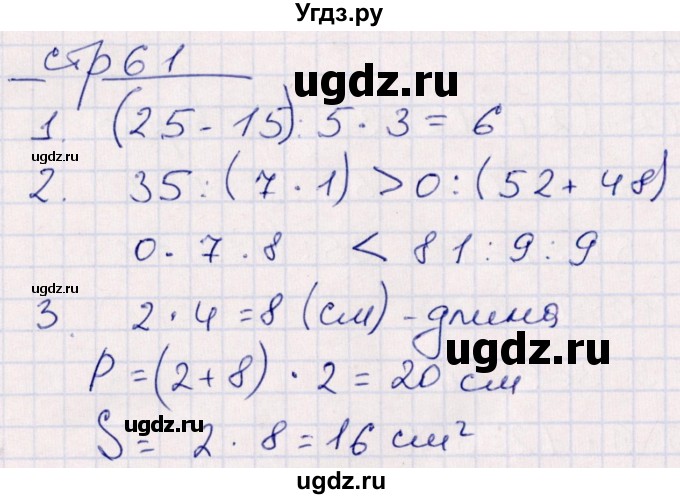 Угдз.ру
стр 61
ugdz.ru
1. (25 - 15) : 5 · 3 = 6
ugdz.ru
2. 35 : (7 · 1) > 0 : (52 + 48)
0 · 7 · 8 < 81 : 9 : 9
ugdz.ru
3 2 · 4 = 8 (см) - длина
ugdz.ru
P = (2 + 8) · 2 = 20 см
ugdz.ru
S = 2 · 8 = 16 см²
ugdz.ru
ugdz.ru